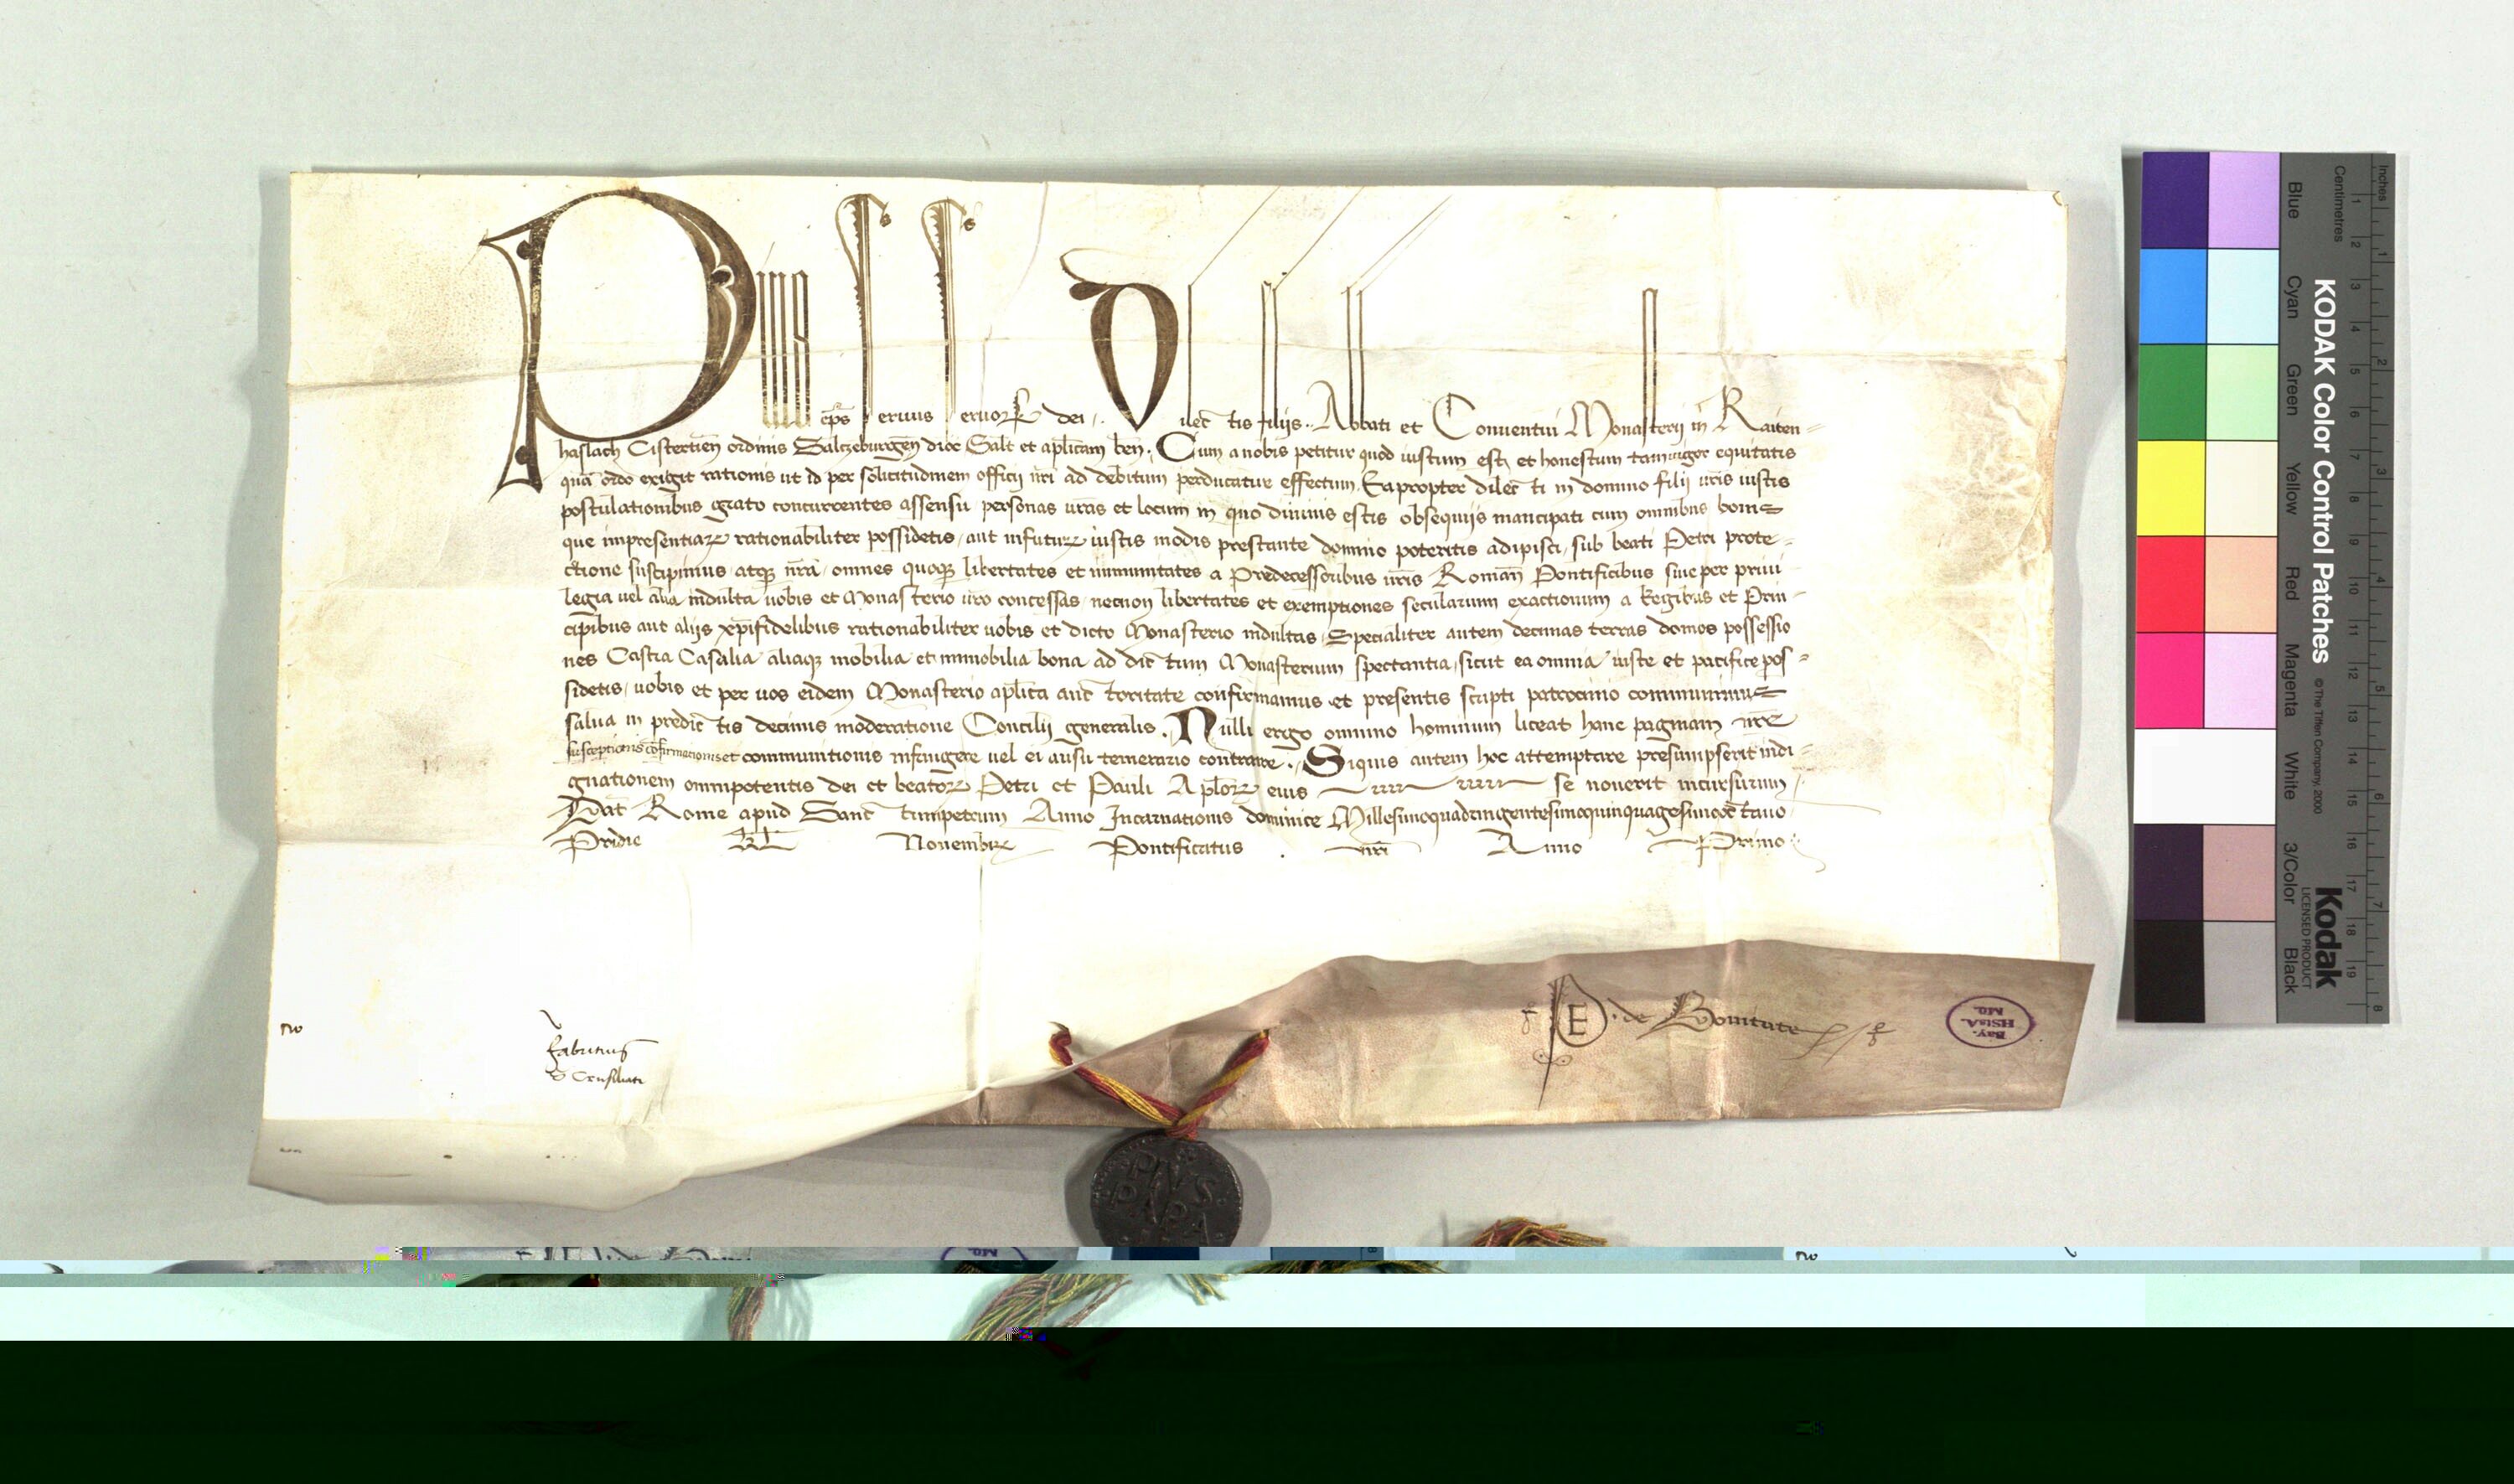 Pius ep̄s seruus seruorꝝ dei .. Dilectis filijs .. Abbati et Conuentui Monasterij in Raiten-
haslach Cistertien̄ ordinis Saltzeburgen̄ dioc̄ Salt̄ et aplīcam ben̄. Cum a nobis petitur quod iustum est, et honestum tam uigor equitatis
quā ordo exigit rationis ut id per solicitudinem officij nr̄i ad debitum perducatur effectum. Eapropter dilecti in domino filij ur̄is iustis
postulationibus grato concurrentes assensu personas ur̄as et locum in quo diuinis estis obsequijs mancipati cum omnibus bonis
que impresentiarꝝ rationabiliter possidetis, aut infuturꝝ iustis modis prestante domino poteritis adipisci, sub beati Petri prote-
ctione suscipimus, atqꝫ nr̄a, omnes quoqꝫ libertates et immunitates a Predecessoribus nr̄is Roman̄ Pontificibus siue per priui-
legia uel alia indulta uobis et Monasterio ur̄o concessas, necnon libertates et exemptiones secularium exactionum a Regibus et Prin-
cipibus aut alijs xp̄ifidelibus rationabiliter uobis et dicto Monasterio indultas, Specialiter autem decimas terras domos possessio
nes Castra Casalia aliaqꝫ mobilia et immobilia bona ad dictum Monasterium spectantia, sicut ea omnia iuste et pacifice pos-
sidetis, uobis et per uos eidem Monasterio aplīca auctoritate confirmamus et presentis scripti patrocinio communimus
salua in predictis decimis moderatione Concilij generalis. Nulli ergo omnino hominum liceat hanc paginam nr̄e
susceptionis cōfirmationis et communitionis infringere uel ei ausu temerario contraire. Siquis autem hoc attemptare presumpserit indi-
gnationem omnipotentis dei et beatorꝝ Petri et Pauli Aplorꝝ eius se nouerit incursurum.
Dat̄ Rome apud Sanctumpetrum Anno Incarnationis dominice Millesimoquadringentesimoquinquagesimooctauo
Pridie kl̄ Nouembrꝭ Pontificatus nr̄i Anno Primo
PE. de Bonitate
Bay.
HStA.
Mü.
fabritius
PIVS
PAPA
KODAK Color Control Patches
© The Tiffen Company, 2000
Kodak
LICENSED PRODUCT
Blue
Cyan
Green
Yellow
Red
Magenta
White
3/Color
Black
Inches
Centimetres
1 2 3 4 5 6 7 8
1 2 3 4 5 6 7 8 9 10 11 12 13 14 15 16 17 18 19